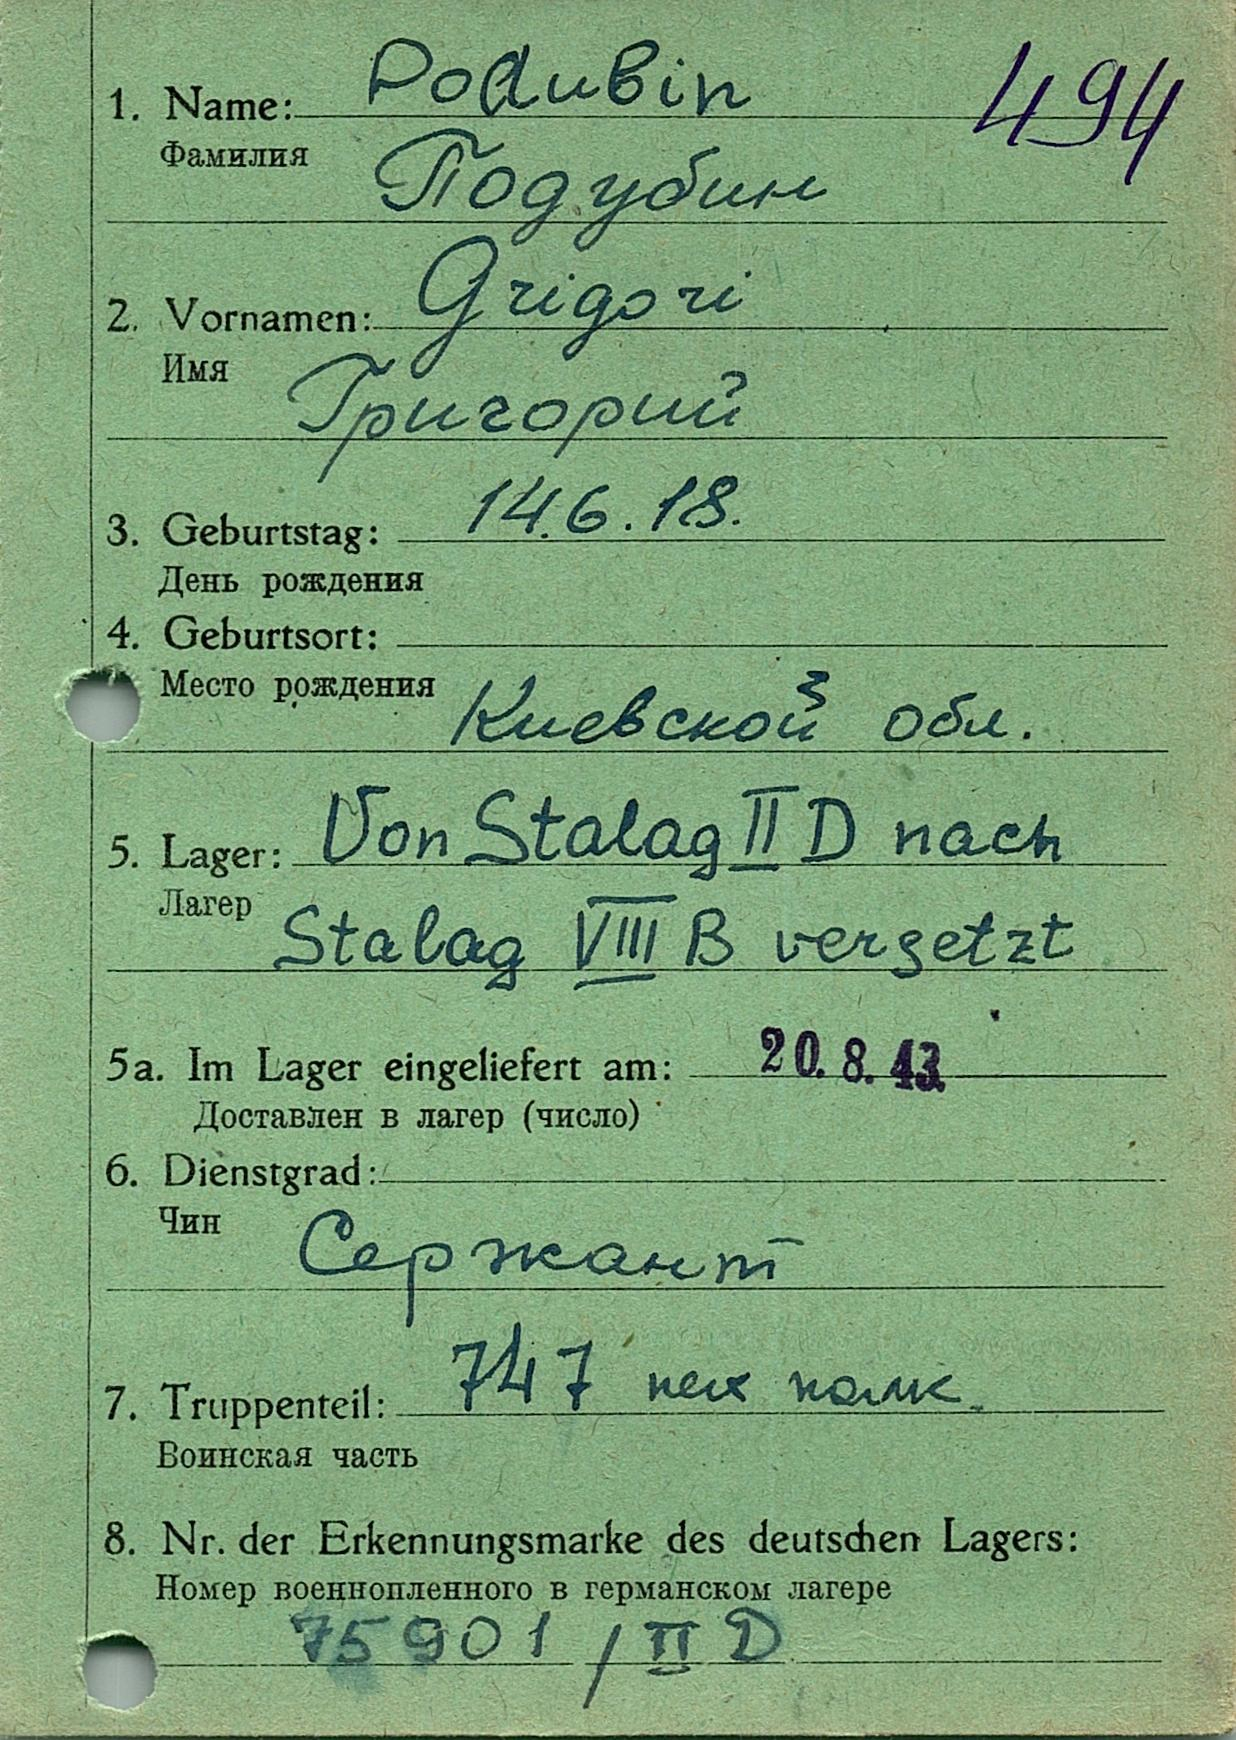 1. Name: Podubin 494
Фамилия
Подубин
2. Vornamen: Grigori
Имя
Григорий
3. Geburtstag: 14.6.18.
День рождения
4. Geburtsort:
Место рождения
Киевской обл.
5. Lager: Von Stalag II D nach
Лагер
Stalag VIII B versetzt
5a. Im Lager eingeliefert am: 20.8.43
Доставлен в лагер (число)
6. Dienstgrad:
Чин
Сержант
7. Truppenteil: 747 пех полк.
Воинская часть
8. Nr. der Erkennungsmarke des deutschen Lagers:
Номер военнопленного в германском лагере
75901 / II D